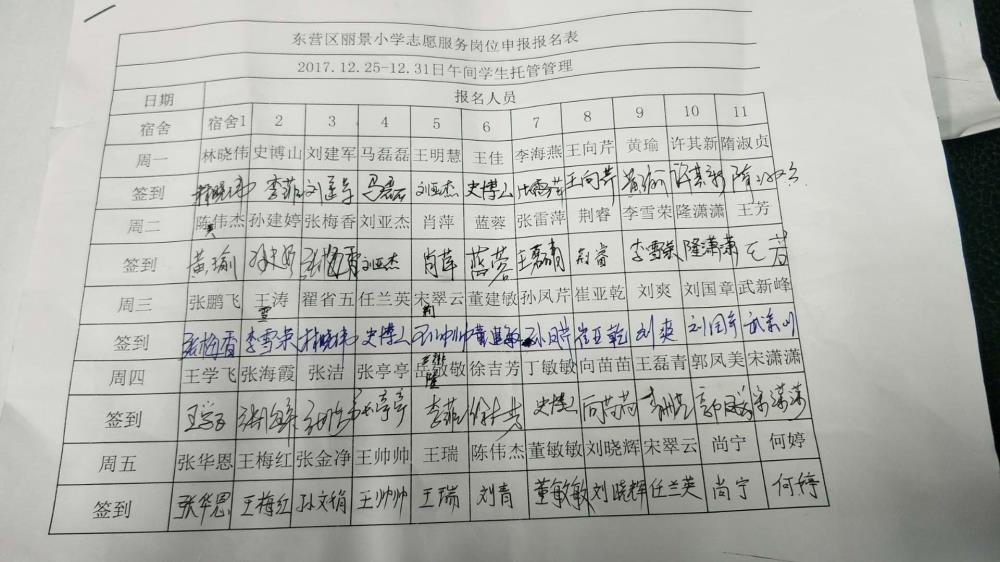 东营区丽景小学志愿服务岗位申报报名表
2017.12.25-12.31日午间学生托管管理
日期 报名人员
宿舍 宿舍1 2 3 4 5 6 7 8 9 10 11
周一 林晓伟 史博山 刘建军 马磊磊 王明慧 王佳 李海燕 王向芹 黄瑜 许其新 隋淑贞
签到 林晓伟 李菲 刘建军 马磊 刘亚杰 史博山 王向芹 黄瑜 许其新 隋
周二 陈伟杰 孙建婷 张梅香 刘亚杰 肖萍 蓝蓉 张雷萍 荆睿 李雪荣 隆潇潇 王芳
签到 黄瑜 张梅香 刘亚杰 肖萍 蓝蓉 王磊青 荆睿 李雪荣 隆潇潇 王芳
周三 张鹏飞 王涛 翟省五 任兰英 宋翠云 董建敏 孙凤芹 崔亚乾 刘爽 刘国章 武新峰
签到 张梅香 李雪荣 林晓伟 史博山 王帅帅 董建敏 孙凤芹 崔亚乾 刘爽 刘国章
周四 王学飞 张海霞 张洁 张亭亭 岳敏敏 徐吉芳 丁敏敏 向苗苗 王磊青 郭凤美 宋潇潇
签到 王学飞 张海霞 张洁 张亭亭 李菲 徐吉芳 史博山 向苗苗 郭凤美 宋潇潇
周五 张华恩 王梅红 张金净 王帅帅 王瑞 陈伟杰 董敏敏 刘晓辉 宋翠云 尚宁 何婷
签到 张华恩 王梅红 孙文娟 王帅帅 王瑞 刘青 董敏敏 刘晓辉 任兰英 尚宁 何婷